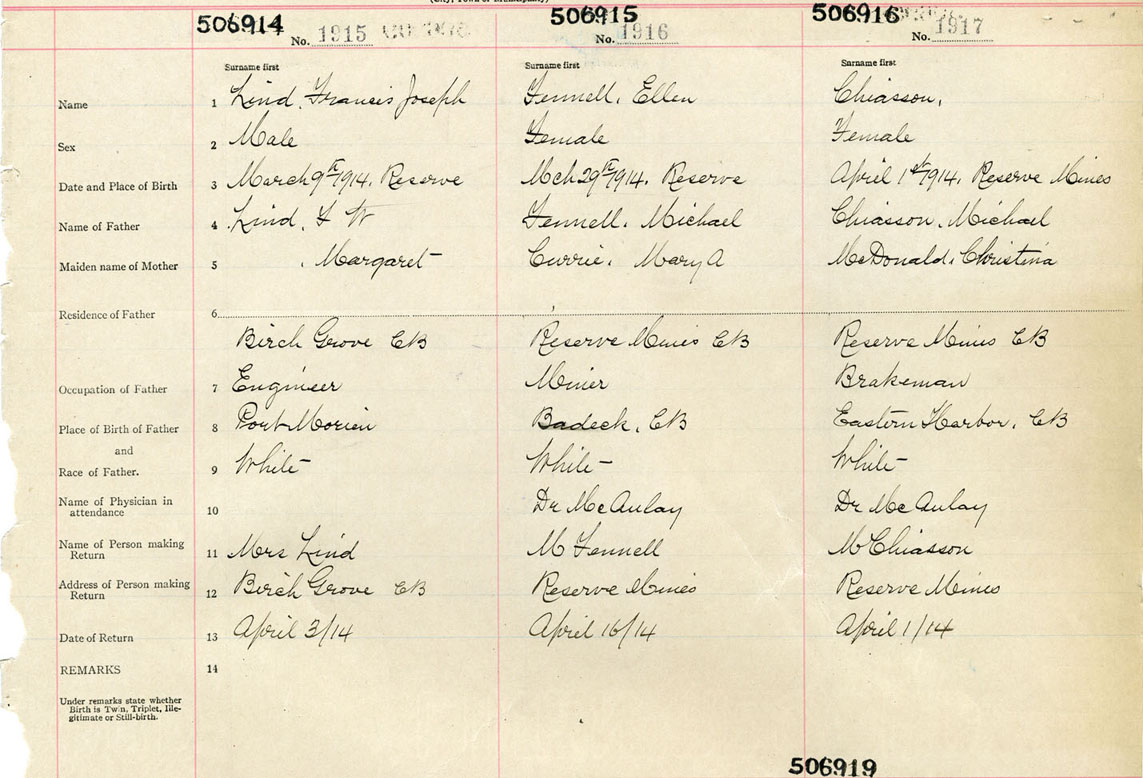 (City, Town or Municipality)
506914 506915 506916
No. 1915 No. 1916 No. 1917
Surname first Surname first Surname first
Name 1 Lind, Francis Joseph Fennell, Ellen Chiasson,
Sex 2 Male Female Female
Date and Place of Birth 3 March 9th 1914. Reserve Mch 29th 1914. Reserve April 1st 1914. Reserve Mines
Name of Father 4 Lind, F W Fennell, Michael Chiasson, Michael
Maiden name of Mother 5 , Margaret Currie, Mary A McDonald, Christina
Residence of Father 6
Birch Grove CB Reserve Mines CB Reserve Mines CB
Occupation of Father 7 Engineer Miner Brakeman
Place of Birth of Father 8 Port Morien Badeck, CB Eastern Harbor, CB
and
Race of Father. 9 White White White
Name of Physician in
attendance 10 Dr McAulay Dr McAulay
Name of Person making
Return 11 Mrs Lind M Fennell M Chiasson
Address of Person making
Return 12 Birch Grove CB Reserve Mines Reserve Mines
Date of Return 13 April 3/14 April 16/14 April 1/14
REMARKS 14
Under remarks state whether
Birth is Twin, Triplet, Ille-
gitimate or Still-birth.
506919